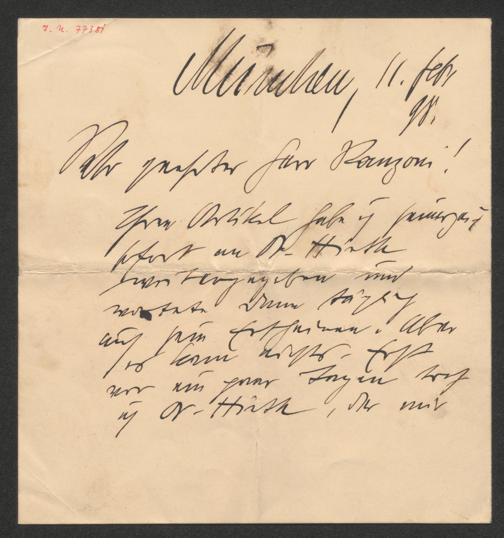 J. N. 77381
München, 11. Febr
98.
Sehr geehrter Herr Ranzoni!
Ihren Artikel habe ich seinerzeit
sofort an Dr. Hirth
weitergegeben und
wartete dann täglich
auf sein Erscheinen. Aber
es kam nichts. Erst
vor ein paar Tagen traf
ich Dr. Hirth, der mir